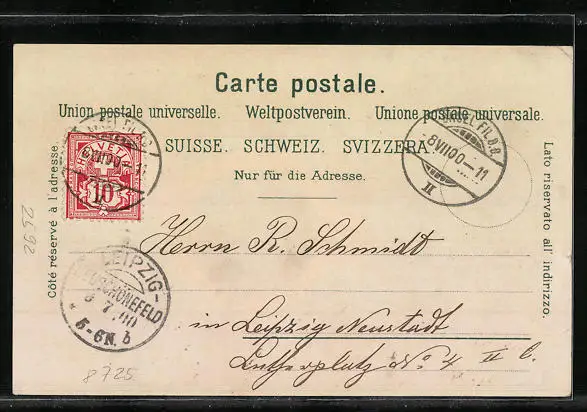 Carte postale.
Union postale universelle. Weltpostverein. Unione postale universale.
SUISSE. SCHWEIZ. SVIZZERA.
Nur für die Adresse.
Côté réservé à l'adresse.
Lato riservato all' indirizzo.
HELVETIA
10
BASEL FIL.B.B.
8VII00-11
II
LEIPZIG-
NEUSCHÖNEFELD
9 7.00
5-6N. b
Herrn R. Schmidt
in Leipzig Neustadt
Lutherplatz No. 4 II b.
2692
8725